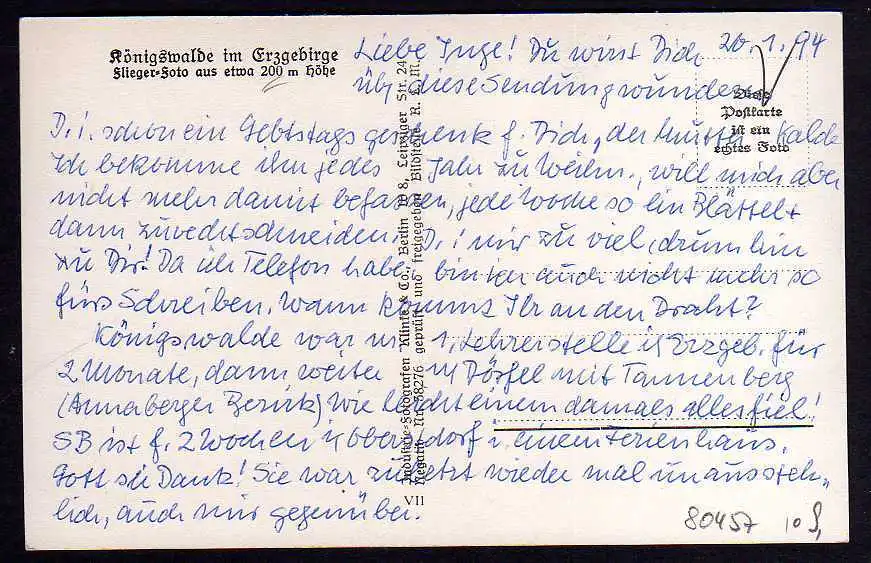 Königswalde im Erzgebirge
Flieger-Foto aus etwa 200 m Höhe
20.1.94
Liebe Inge! Du wirst Dich
üb. diese Sendung wundern
Diese
Postkarte
ist ein
echtes Foto
D. i. schon ein Gebtstagsgeschenk f. Dich, der
Ich bekomme ihn jedes Jahr zu Weihn., will mich aber
nicht mehr damit befassen, jede Woche so ein Blättel
dann zurechtschneiden. D. i. mir zu viel, drum hin
zu Dir! Da ich Telefon habe, bin ich auch nicht mehr so
fürs Schreiben. Wann kommt Ihr an den Draht?
Königswalde war m. 1. Lehrerstelle i. Erzgeb. für
2 Monate, dann weiter n. Dörfel mit Tannenberg
(Annaberger Bezirk) Wie leicht einem damals alles fiel!
SB ist f. 2 Wochen i. i. einem Ferienhaus.
Gott sei Dank! Sie war zuletzt wieder mal unaussteh-
lich, auch mir gegenüber.
Industrie-Fotografen Klinke & Co., Berlin W 8, Leipziger Str. 24
Negativ Nr. 38276 geprüft und freigegeben Bildstelle R. L. M.
VII
80457